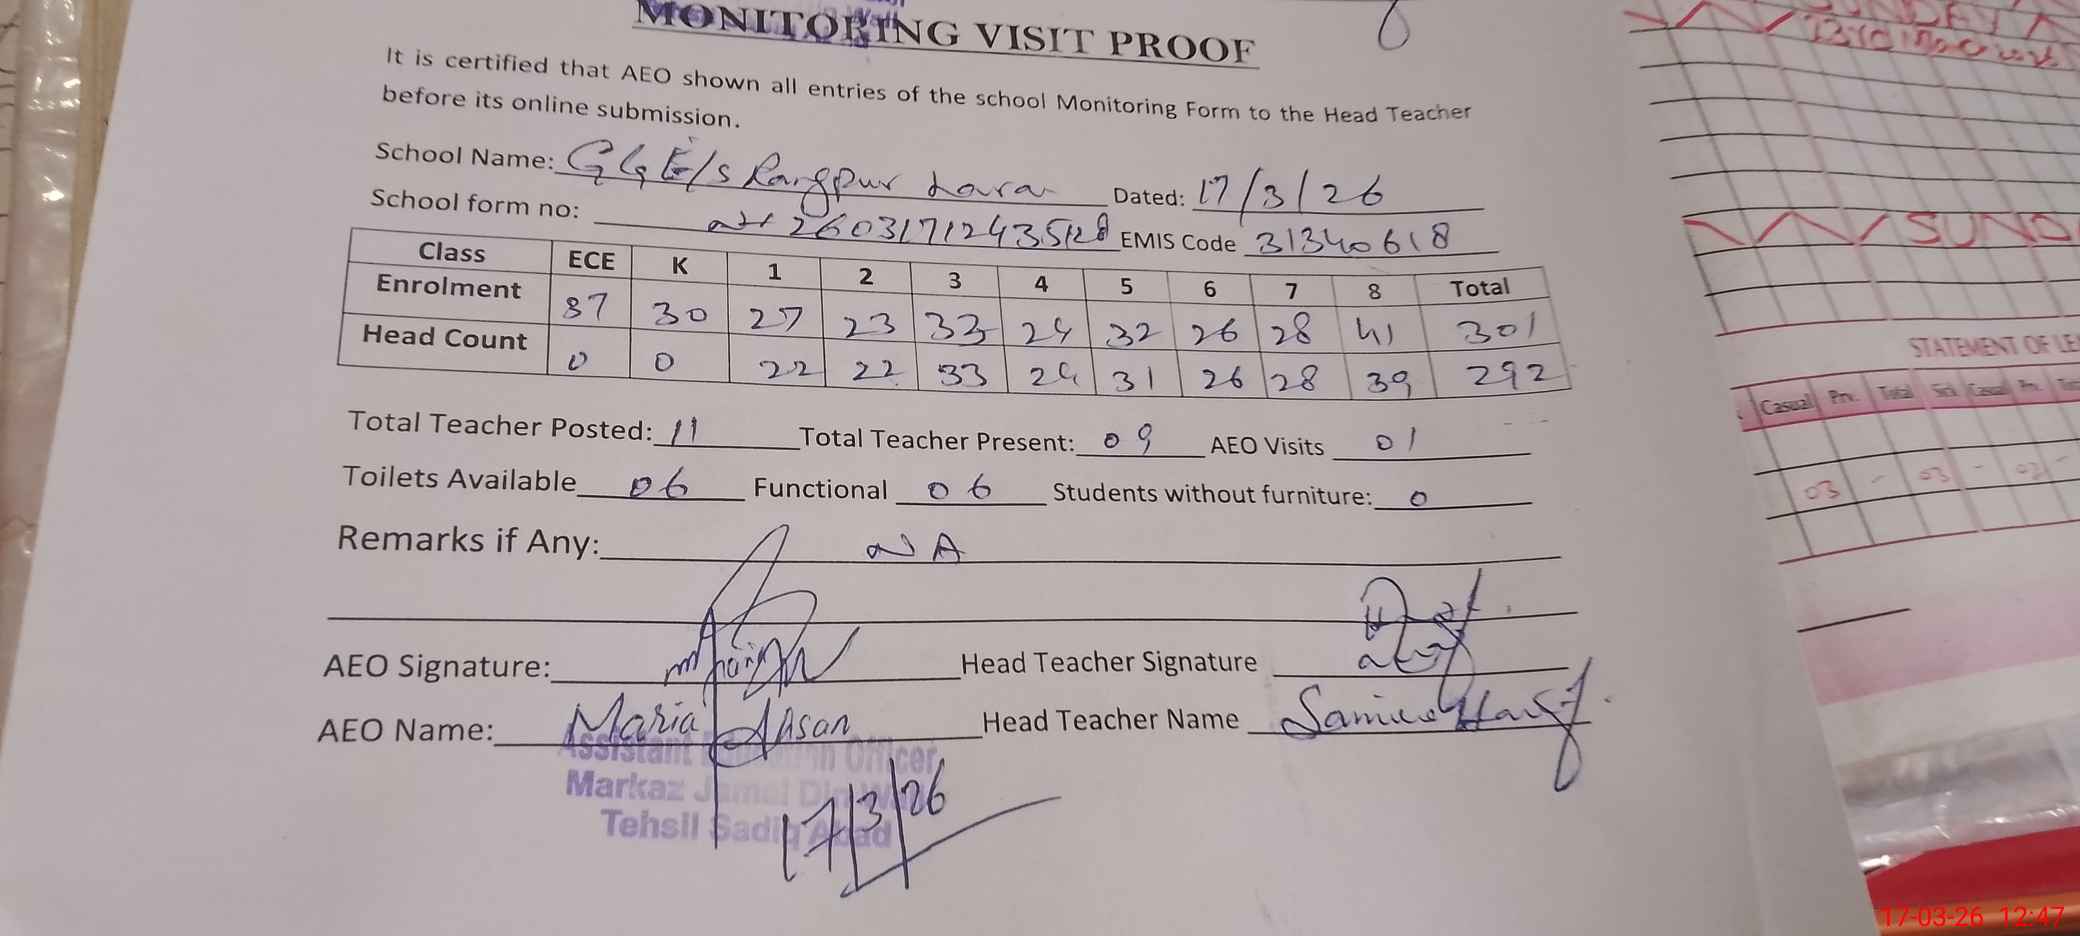 MONITORING VISIT PROOF
It is certified that AEO shown all entries of the school Monitoring Form to the Head Teacher
before its online submission.
School Name: GGE/S Rangpur Laran Dated: 17/3/26
School form no: 26031712435128 EMIS Code 31340618
Class ECE K 1 2 3 4 5 6 7 8 Total
Enrolment 37 30 27 23 33 24 32 26 28 41 301
Head Count 0 0 22 22 33 24 31 26 28 39 292
Total Teacher Posted: 11 Total Teacher Present: 09 AEO Visits 01
Toilets Available 06 Functional 06 Students without furniture: 0
Remarks if Any: NA
AEO Signature: Head Teacher Signature
AEO Name: Maria Ahsan Head Teacher Name
Assistant Officer
Markaz Jamal Din
Tehsil Sadiq Abad
17/3/26
SUNDAY
SUND
STATEMENT OF LE
Casual Prv. Total Sick Casual Prv.
03 - 03 - 03 -
17-03-26 12:47